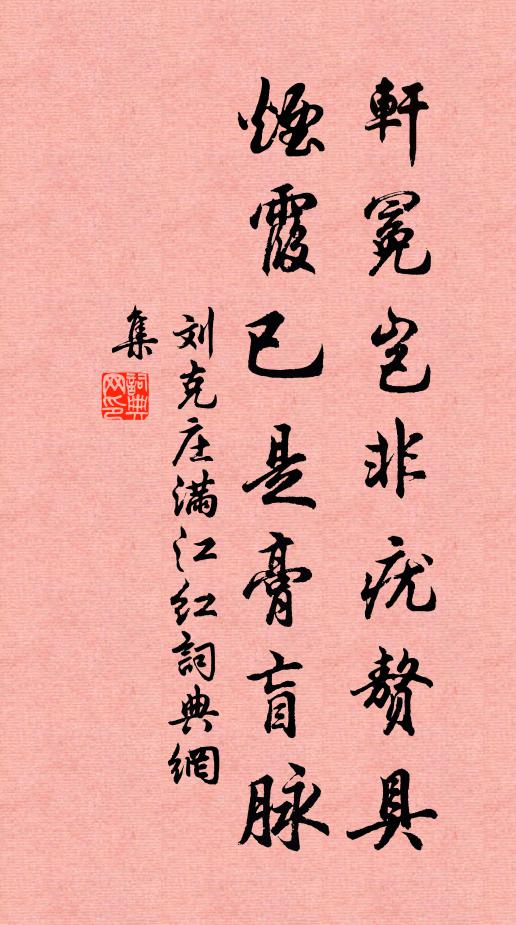 軒冕岂非疣赘具
煙霞已是膏肓脉
刘克庄满江红詞典網
集
詞典网印